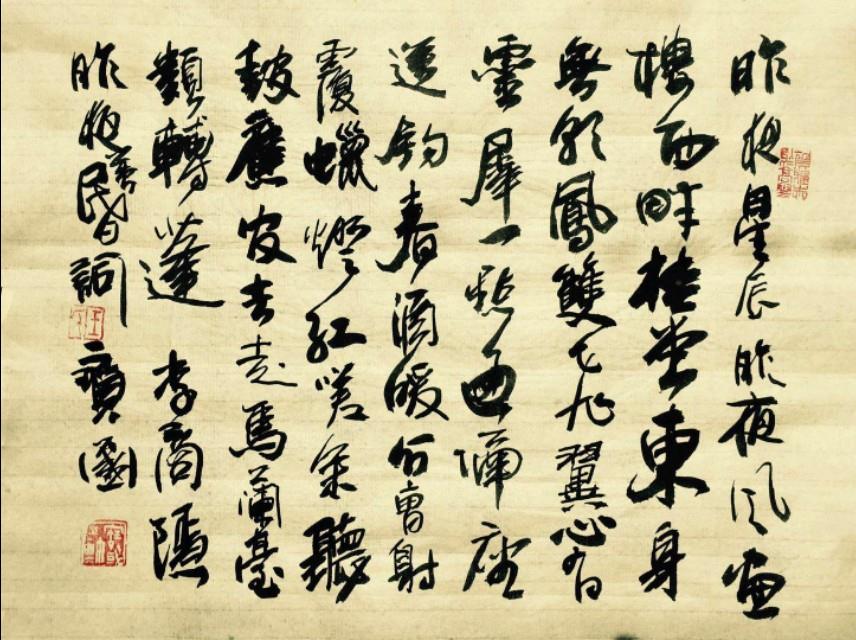 昨夜星辰昨夜風畫
樓西畔桂堂東身
無彩鳳雙飛翼心有
靈犀一點通隔座
送鈎春酒暖分曹射
覆蠟燈紅嗟余聽
鼓應官去走馬蘭臺
類轉蓬 李商隱
昨夜 詞 寶國